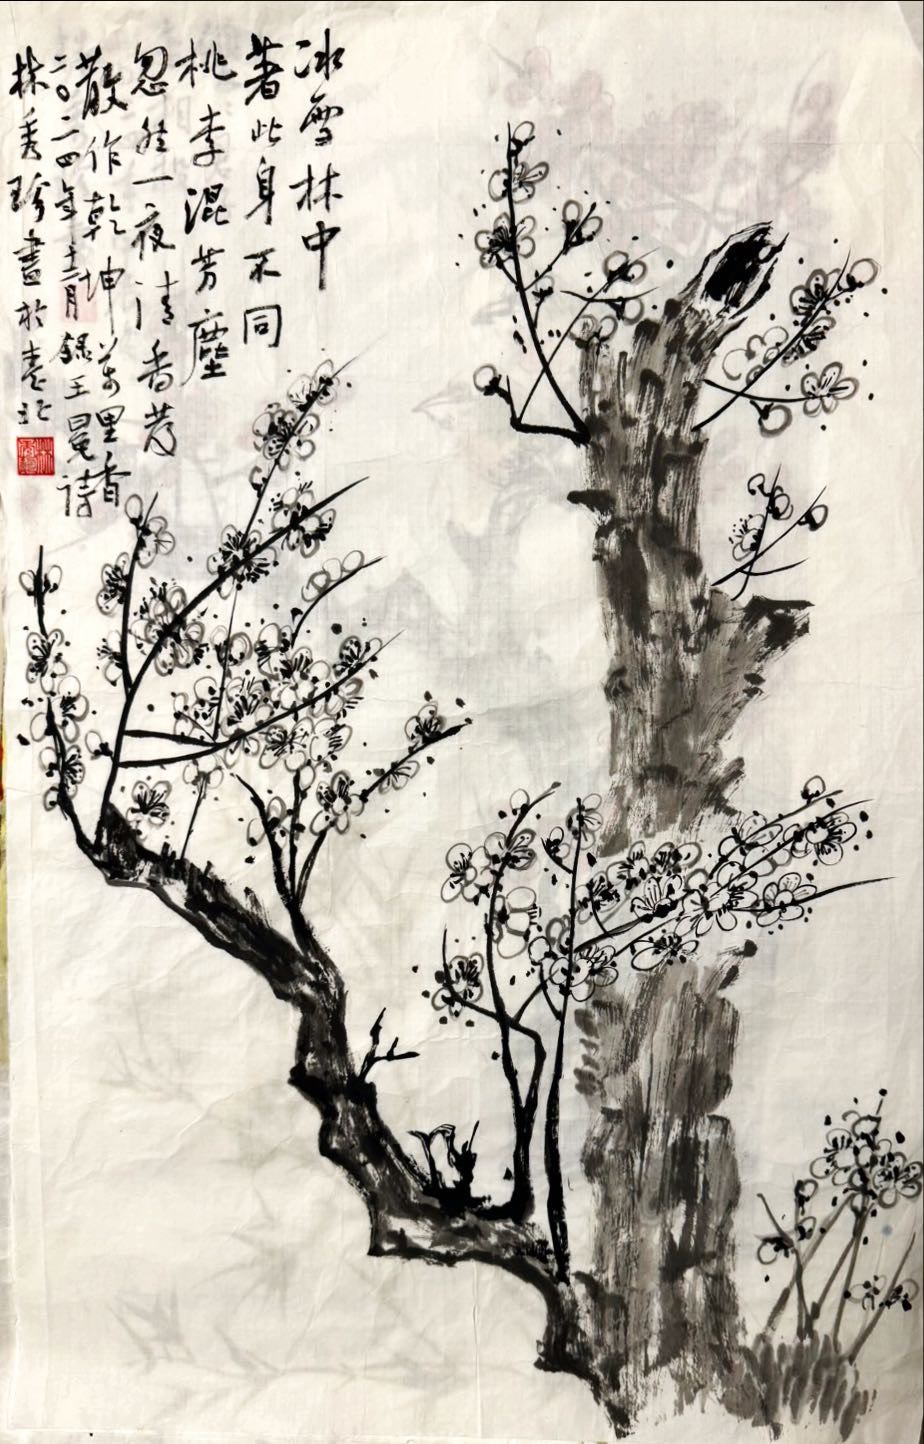 冰雪林中
著此身不同
桃李混芳塵
忽然一夜清香發
散作乾坤萬里香
二〇二四年十二月錄王冕詩
林秀珍書於臺北